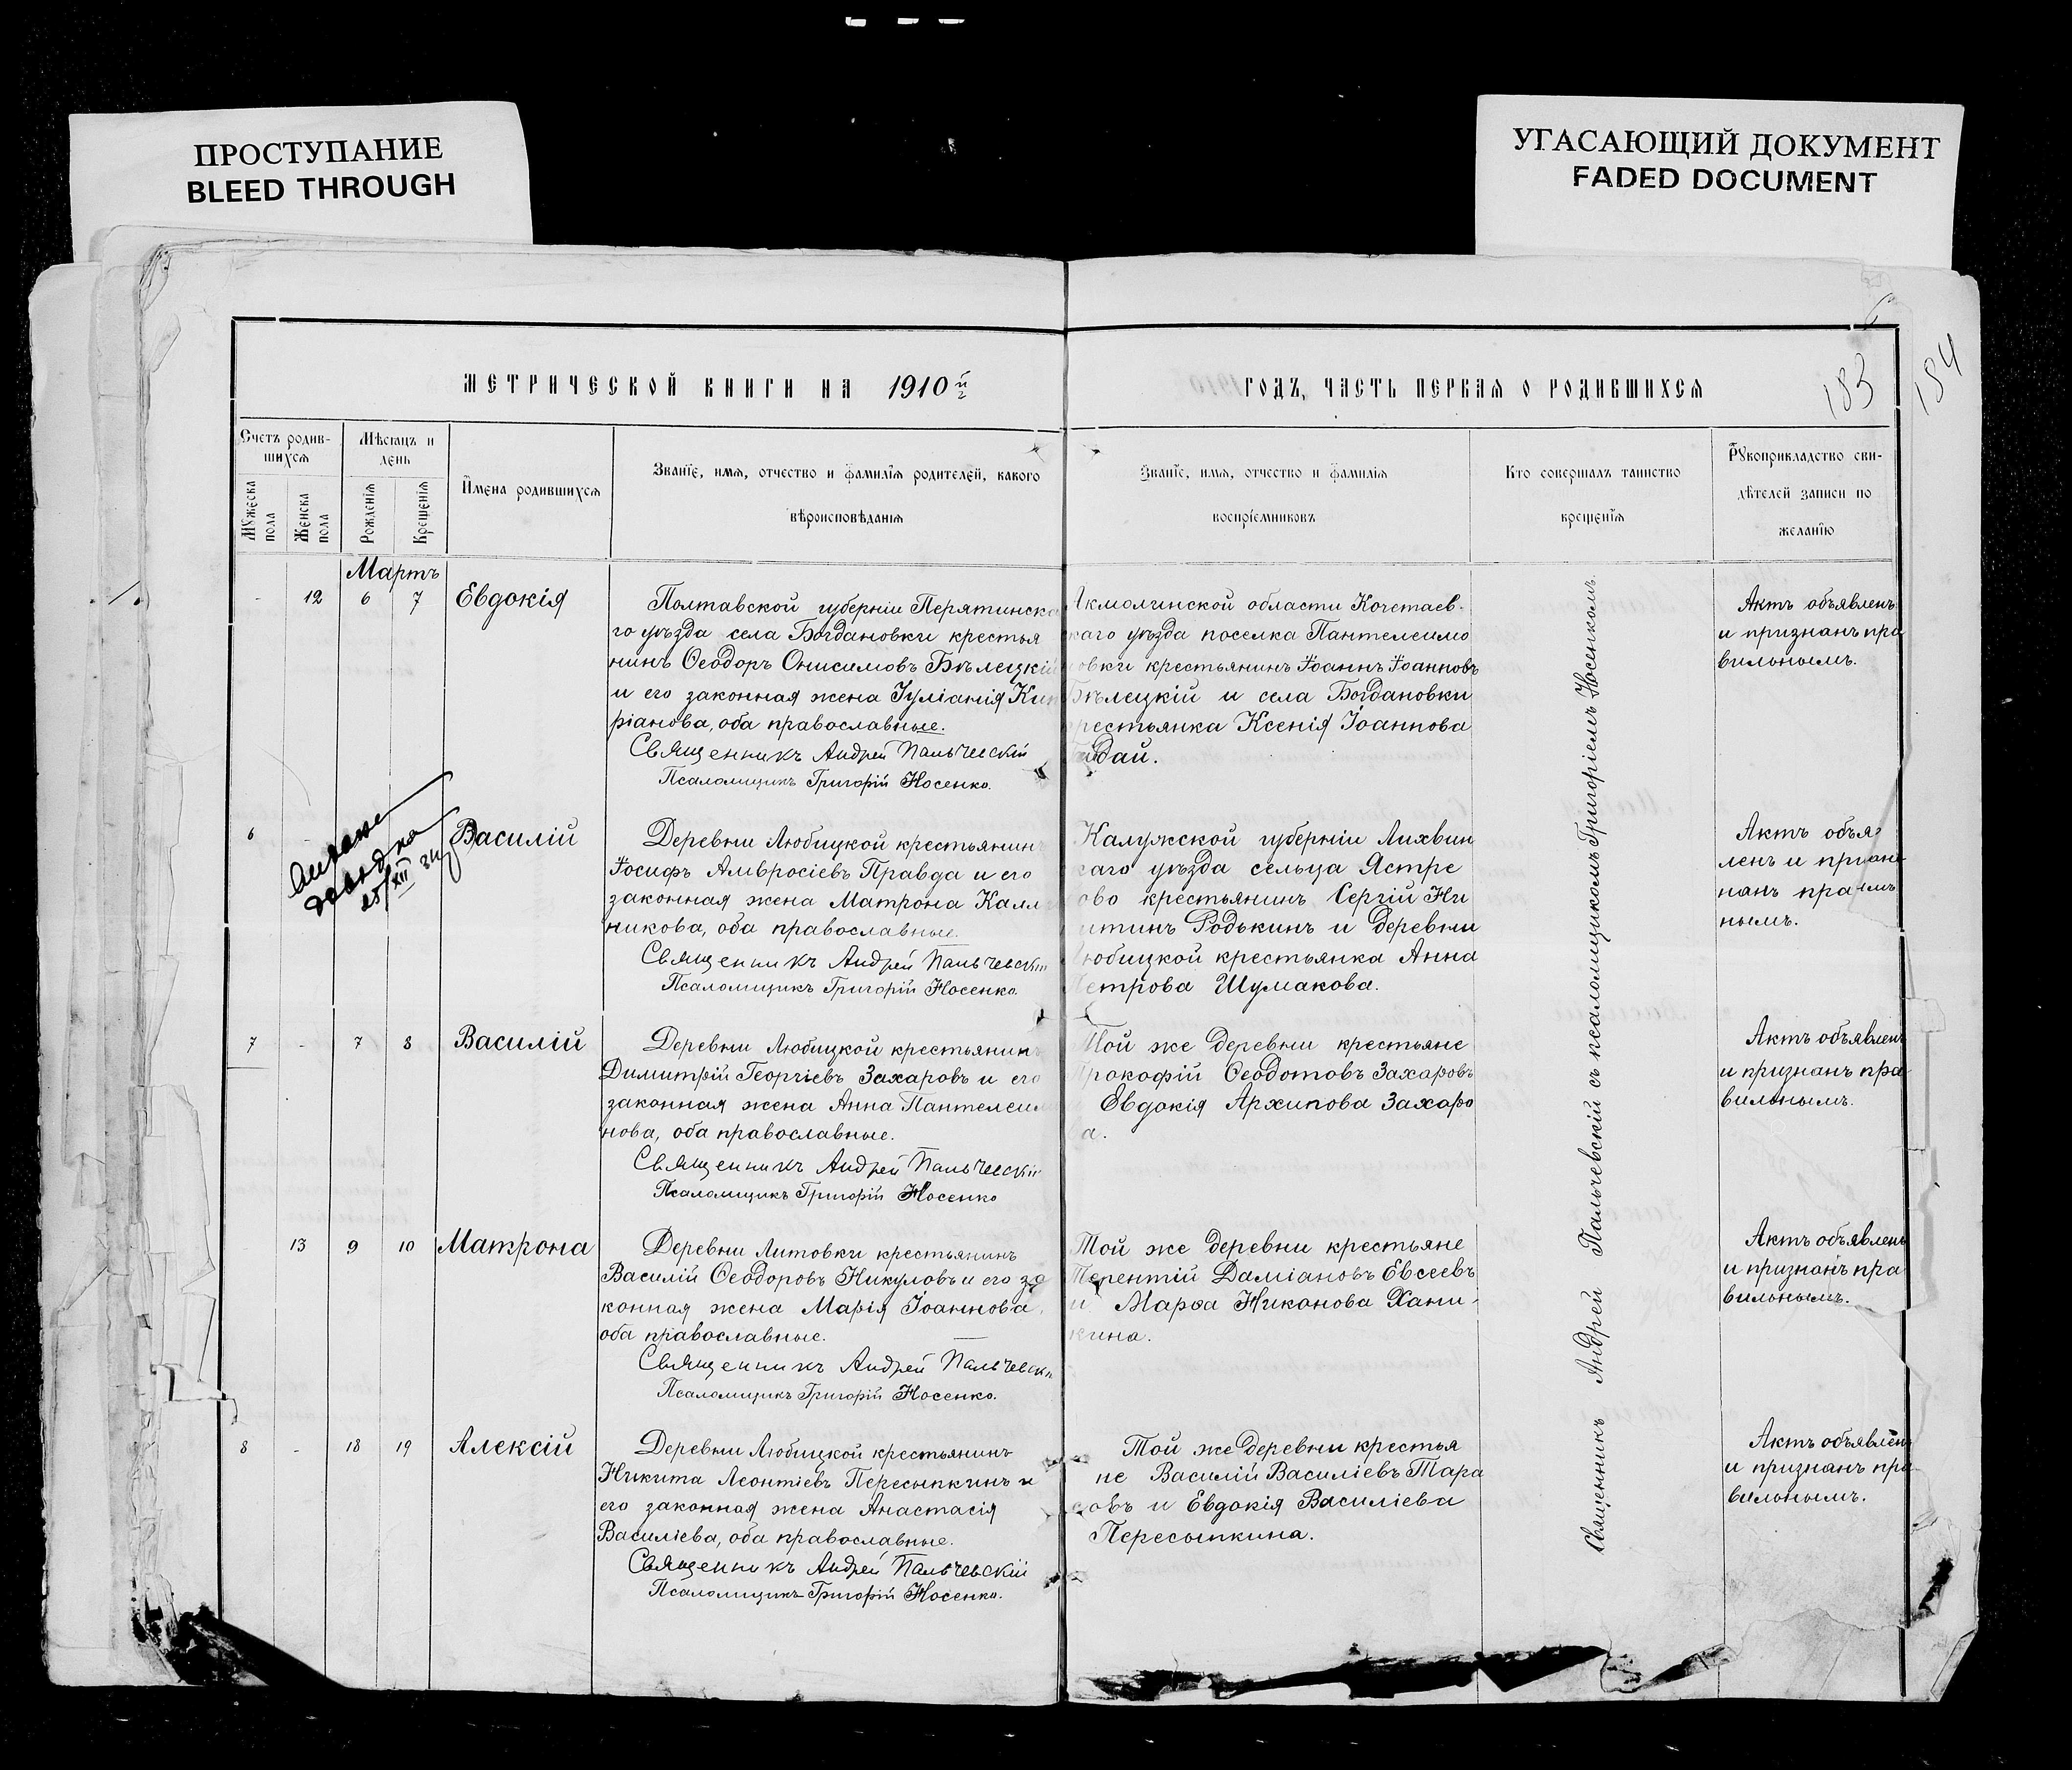 ПРОСТУПАНИЕ
BLEED THROUGH
УГАСАЮЩИЙ ДОКУМЕНТ
FADED DOCUMENT
МЕТРИЧЕСКОЙ КНИГИ НА 1910 й г
ГОДЪ, ЧАСТЬ ПЕРВАЯ О РОДИВШИХСЯ
183
184
Счетъ родив-
шихся
Мужеска
пола
Женска
пола
Мѣсяцъ и
день
Рожденія
Крещенія
Имена родившихся
Званіе, имя, отчество и фамилія родителей, какого
вѣроисповѣданія
Званіе, имя, отчество и фамилія
воспріемниковъ
Кто совершалъ таинство
крещенія
Рукоприкладство сви-
дѣтелей записи по
желанію
Мартъ
- 12 6 7 Евдокія
Полтавской губерніи Перятинско
го уѣзда села Богдановки крестья
нинъ Ѳеодоръ Онисимовъ Бѣлецкій
и его законная жена Іуліанія Кип
ріанова, оба православные.
Священникъ Андрей Пальчевскій
Псаломщикъ Григорій Носенко.
Акмолинской области Кочетаев-
скаго уѣзда поселка Пантелеимо
новки крестьянинъ Іоаннъ Іоанновъ
Бѣлецкій и села Богдановки
крестьянка Ксенія Іоаннова
Гайдай.
Актъ объявленъ
и признанъ пра
вильнымъ.
6 - Василій
25/XII
Деревни Любицкой крестьянинъ
Іосифъ Амвросіевъ Правда и его
законная жена Матрона Калли
никова, оба православные.
Священникъ Андрей Пальчевскій
Псаломщикъ Григорій Носенко.
Калужской губерніи Лихвин
скаго уѣзда сельца Ястре
бово крестьянинъ Сергій Ни
китинъ Родькинъ и деревни
Любицкой крестьянка Анна
Петрова Шумакова.
Актъ объя
ленъ и
нанъ
нымъ.
7 - 7 8 Василій
Деревни Любицкой крестьянинъ
Димитрій Георгіевъ Захаровъ и его
законная жена Анна Пантелеимо
нова, оба православные.
Священникъ Андрей Пальчевскій
Псаломщикъ Григорій Носенко
Той же деревни крестьяне
Прокофій Ѳеодотовъ Захаровъ
Евдокія Архипова Захаро
ва.
Актъ объявленъ
и признанъ пра
вильнымъ.
13 9 10 Матрона
Деревни Литовки крестьянинъ
Василій Ѳеодоровъ Никуловъ и его за
конная жена Марія Іоаннова,
оба православные.
Священникъ Андрей Пальчевскій
Псаломщикъ Григорій Носенко.
Той же деревни крестьяне
Терентій Даміановъ Евсеевъ
и Марѳа Никонова Хани-
кина.
Актъ объявленъ
и признанъ пра
вильнымъ.
8 - 18 19 Алексій
Деревни Любицкой крестьянинъ
Никита Леонтіевъ Пересыпкинъ и
его законная жена Анастасія
Василіева, оба православные.
Священникъ Андрей Пальчевскій
Псаломщикъ Григорій Носенко.
Той же деревни крестья
не Василій Василіевъ Тара
совъ и Евдокія Василіева
Пересыпкина.
Актъ объявленъ
и признанъ пра
вильнымъ.
Священникъ Андрей Пальчевскій съ псаломщикомъ Григоріемъ Носенкомъ